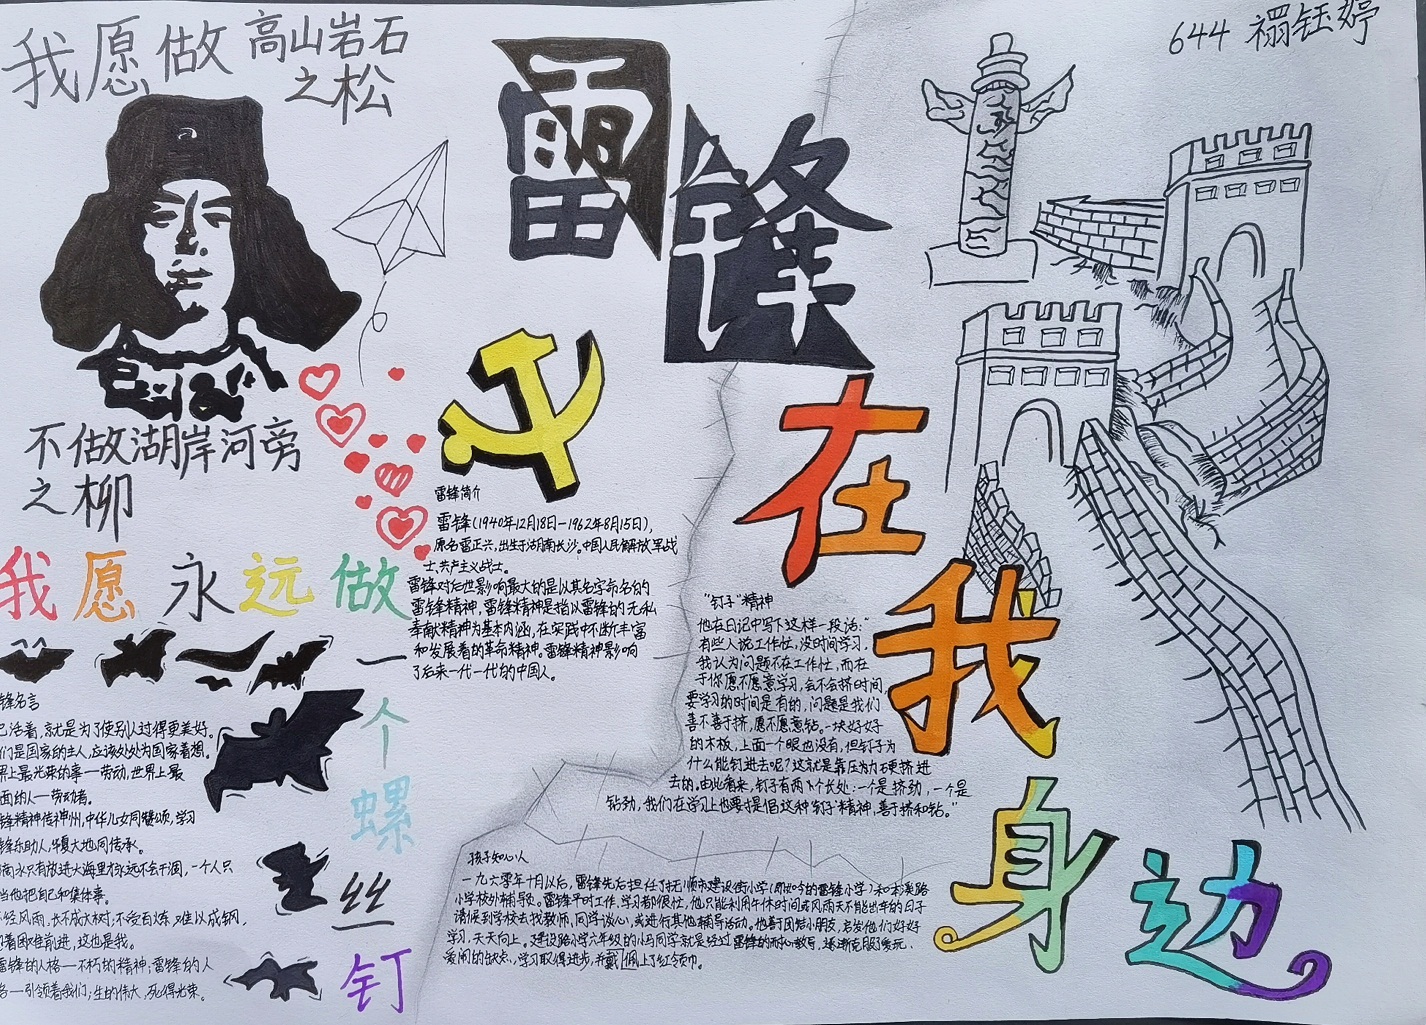 我愿做高山岩石
之松
644 禤钰婷
雷锋
在我身边
不做湖岸河旁
之柳
我愿永远做
一个螺丝钉
雷锋简介
雷锋(1940年12月18日-1962年8月15日),
原名雷正兴,出生于湖南长沙。中国人民解放军战
士、共产主义战士。
雷锋对后世影响最大的是以其名字命名的
雷锋精神,雷锋精神是指以雷锋的无私
奉献精神为基本内涵,在实践中不断丰富
和发展着的革命精神。雷锋精神影响
了后来一代一代的中国人。
"钉子"精神
他在日记中写下这样一段话:"
有些人说工作忙,没时间学习,
我认为问题不在工作忙,而在
于你愿不愿意学习,会不会挤时间,
要学习的时间是有的,问题是我们
善不善于挤,愿不愿意钻。一块好好
的木板,上面一个眼也没有,但钉子为
什么能钉进去呢?这就是靠压力硬挤进
去的。由此看来,钉子有两个长处:一个是挤劲,一个是
钻劲,我们在学习上也要提倡这种"钉子"精神,善于挤和钻。"
锋名言
己活着,就是为了使别人过得更美好。
们是国家的主人,应该处处为国家着想。
界上最光荣的事—劳动,世界上最
面的人—劳动者。
锋精神传神州,中华儿女同赞颂,学习
锋乐助人,华夏大地同传承。
滴水只有放进大海里才永远不会干涸,一个人只
当他把自己和集体事。
经风雨,长不成大树,不受百炼,难以成钢,
着困难前进,这也是我。
雷锋的人格—不朽的精神;雷锋的人
格—引领着我们;生的伟大,死得光荣。
孩子知心人
一九六零年十月以后,雷锋先后担任了抚顺市建设街小学(即如今的雷锋小学)和本溪路
小学校外辅导员。雷锋平时工作、学习都很忙,他只能利用午休时间或风雨天不能出车的日子
请假到学校去找教师,同学谈心,或进行其他辅导活动。他善于团结小朋友,启发他们好好
学习,天天向上。建设路小学六年级的小马同学就是经过雷锋的耐心教导,逐渐克服了贪玩、
爱闹的缺点,学习取得进步,并戴佩上了红领巾。